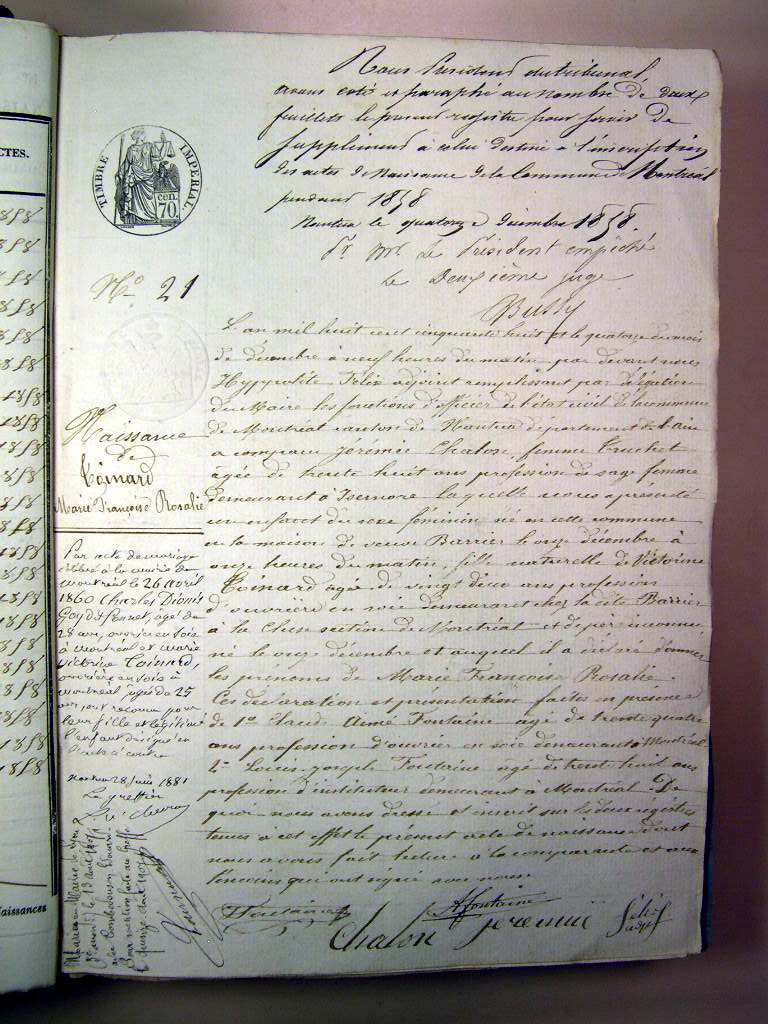 Nous Président du tribunal
avons coté et paraphé au nombre de deux
feuillets le présent registre pour servir de
supplément à celui destiné à l'inscription
des actes de Naissance de la Commune de Montréal
pendant 1858
Nantua le quatorze Décembre 1858.
Pr Mr le Président empêché
le Deuxième juge
Bussy
TIMBRE IMPÉRIAL.
cen. 70.
No 21
L'an mil huit cent cinquante huit et le quatorze du mois
de décembre à neuf heures du matin par devant nous
Hyppolite Felix adjoint remplissant par délégation
du Maire les fonctions d'officier de l'état civil de la commune
de Montréal canton de Nantua département de l'ain
a comparu Jérémie Chalon, femme Truchet
agée de trente huit ans profession de sage femme
demeurant à Isernore laquelle nous a présenté
un enfant du sexe féminin né en cette commune
en la maison de veuve Barrier le onze décembre à
onze heures du matin, fille naturelle de Victorine
Coinard agée de vingt deux ans profession
d'ouvrière en soie demeurant chez la dite Barrier
à la Cluse section de Montréal et de père inconnu
né le onze décembre et auquel il a déclaré donner
les prénoms de Marie Françoise Rosalie.
Ces déclaration et présentation faites en présence
de 1o Claude Aimé Fontaine agé de trente quatre
ans profession d'ouvrier en soie demeurant à Montréal
2o Louis Joseph Fontaine agé de trente huit ans
profession d'instituteur demeurant à Montréal. De
quoi nous avons dressé et inscrit sur les deux régistres
tenus à cet effet le présent acte de naissance dont
nous avons fait lecture à la comparante et aux
témoins qui ont signé avec nous.
Fontaine
A Fontaine
Chalon jeremie
Félix
adjt
Naissance
de
Coinard
Marie Françoise Rosalie
Par acte de mariage
célébré à la mairie de
Montréal le 26 avril
1860 Charles Dionis
Goy dit Pennet, agé de
28 ans, ouvrier en soie
à Montréal et Marie
Victorine Coinard,
ouvrière en soie à
Montréal agée de 25
ans, ont reconnu pour
leur fille et légitimé
l'enfant désigné en
l'acte ci contre
Nantua 28 juin 1881
Le greffier
Mariée en Mairie de Lyon
le 13 avril
le quinze
ACTES.
1858
1858
1858
1858
1858
1858
1858
1858
1858
1858
1858
1858
1858
1858
1858
1858
1858
1858
1858
1858
Naissances